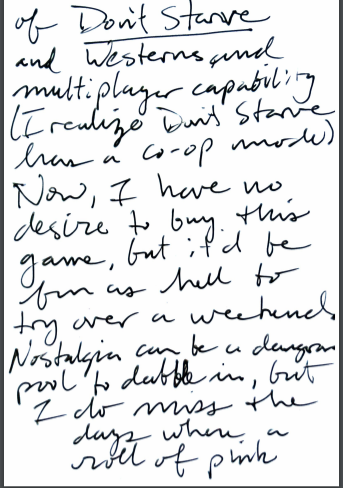 of Don't Starve
and Westerns, and
multiplayer capability
(I realize Don't Starve
has a co-op mode)
Now, I have no
desire to buy this
game, but it'd be
fun as hell to
try over a weekend.
Nostalgia can be a dangerous
pool to dabble in, but
I do miss the
days where a
roll of pink